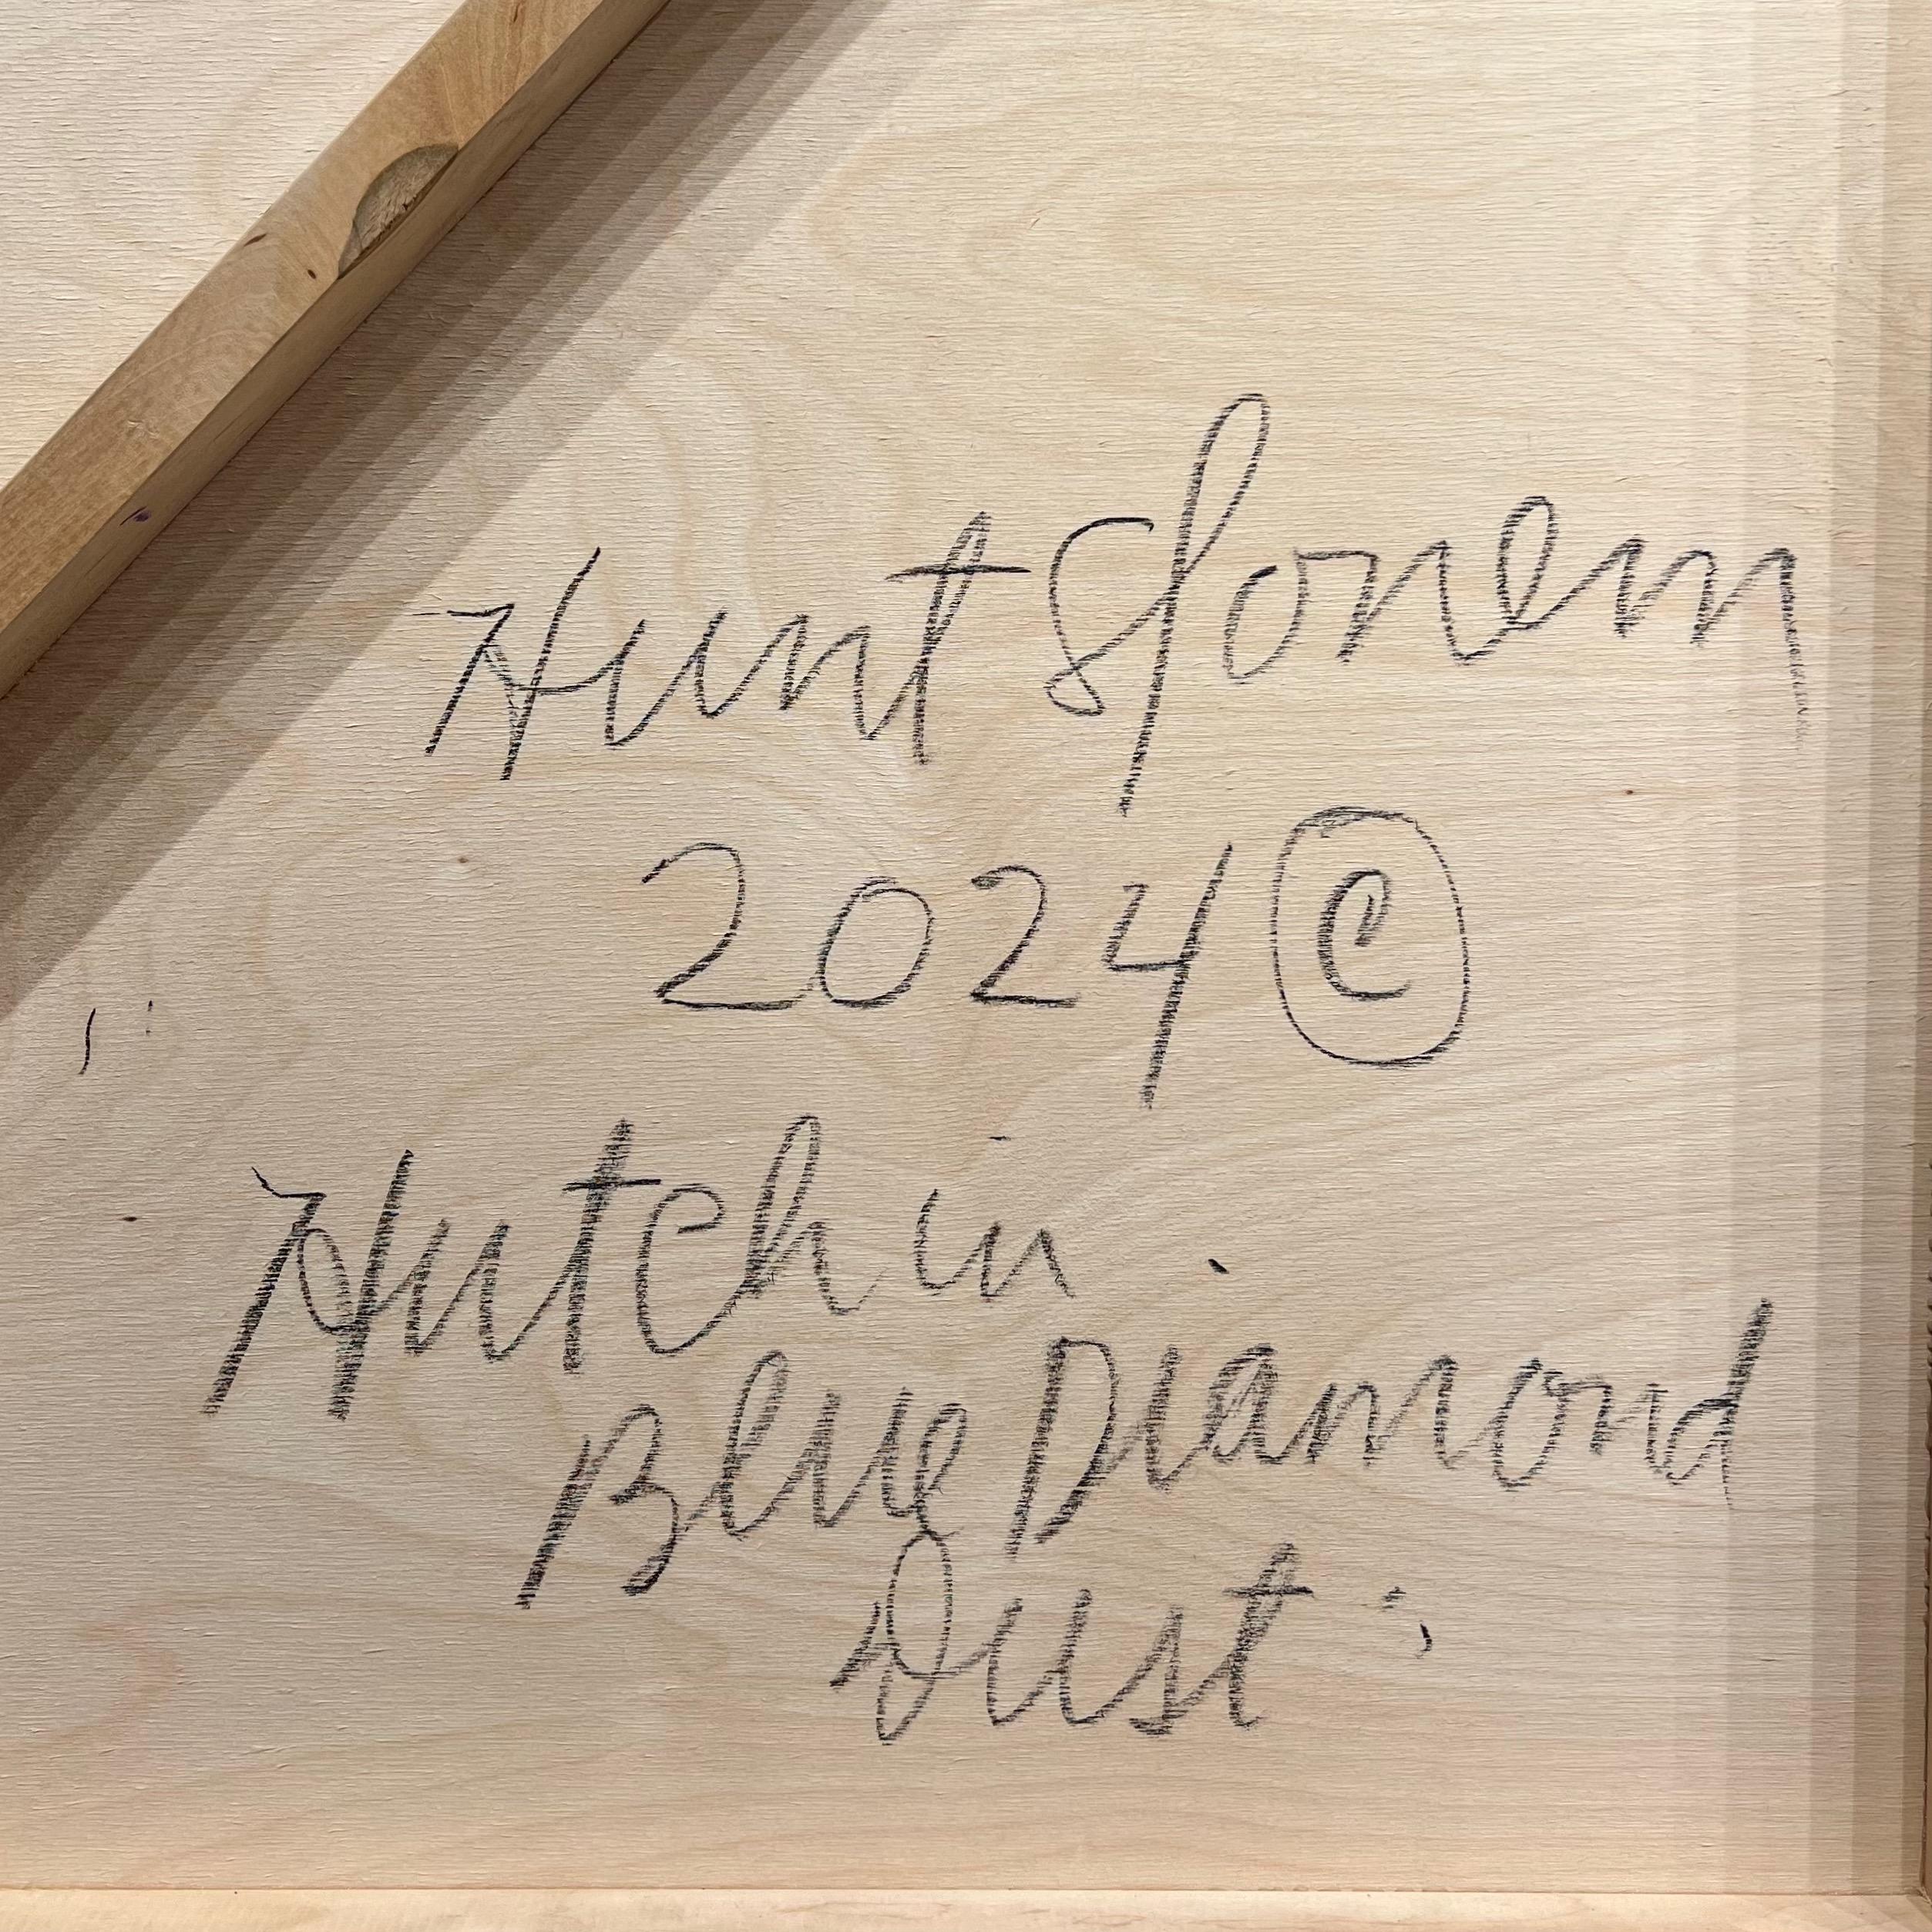 Hunt Slonem
2024 ©
Hutch in
Blue Diamond
Dust